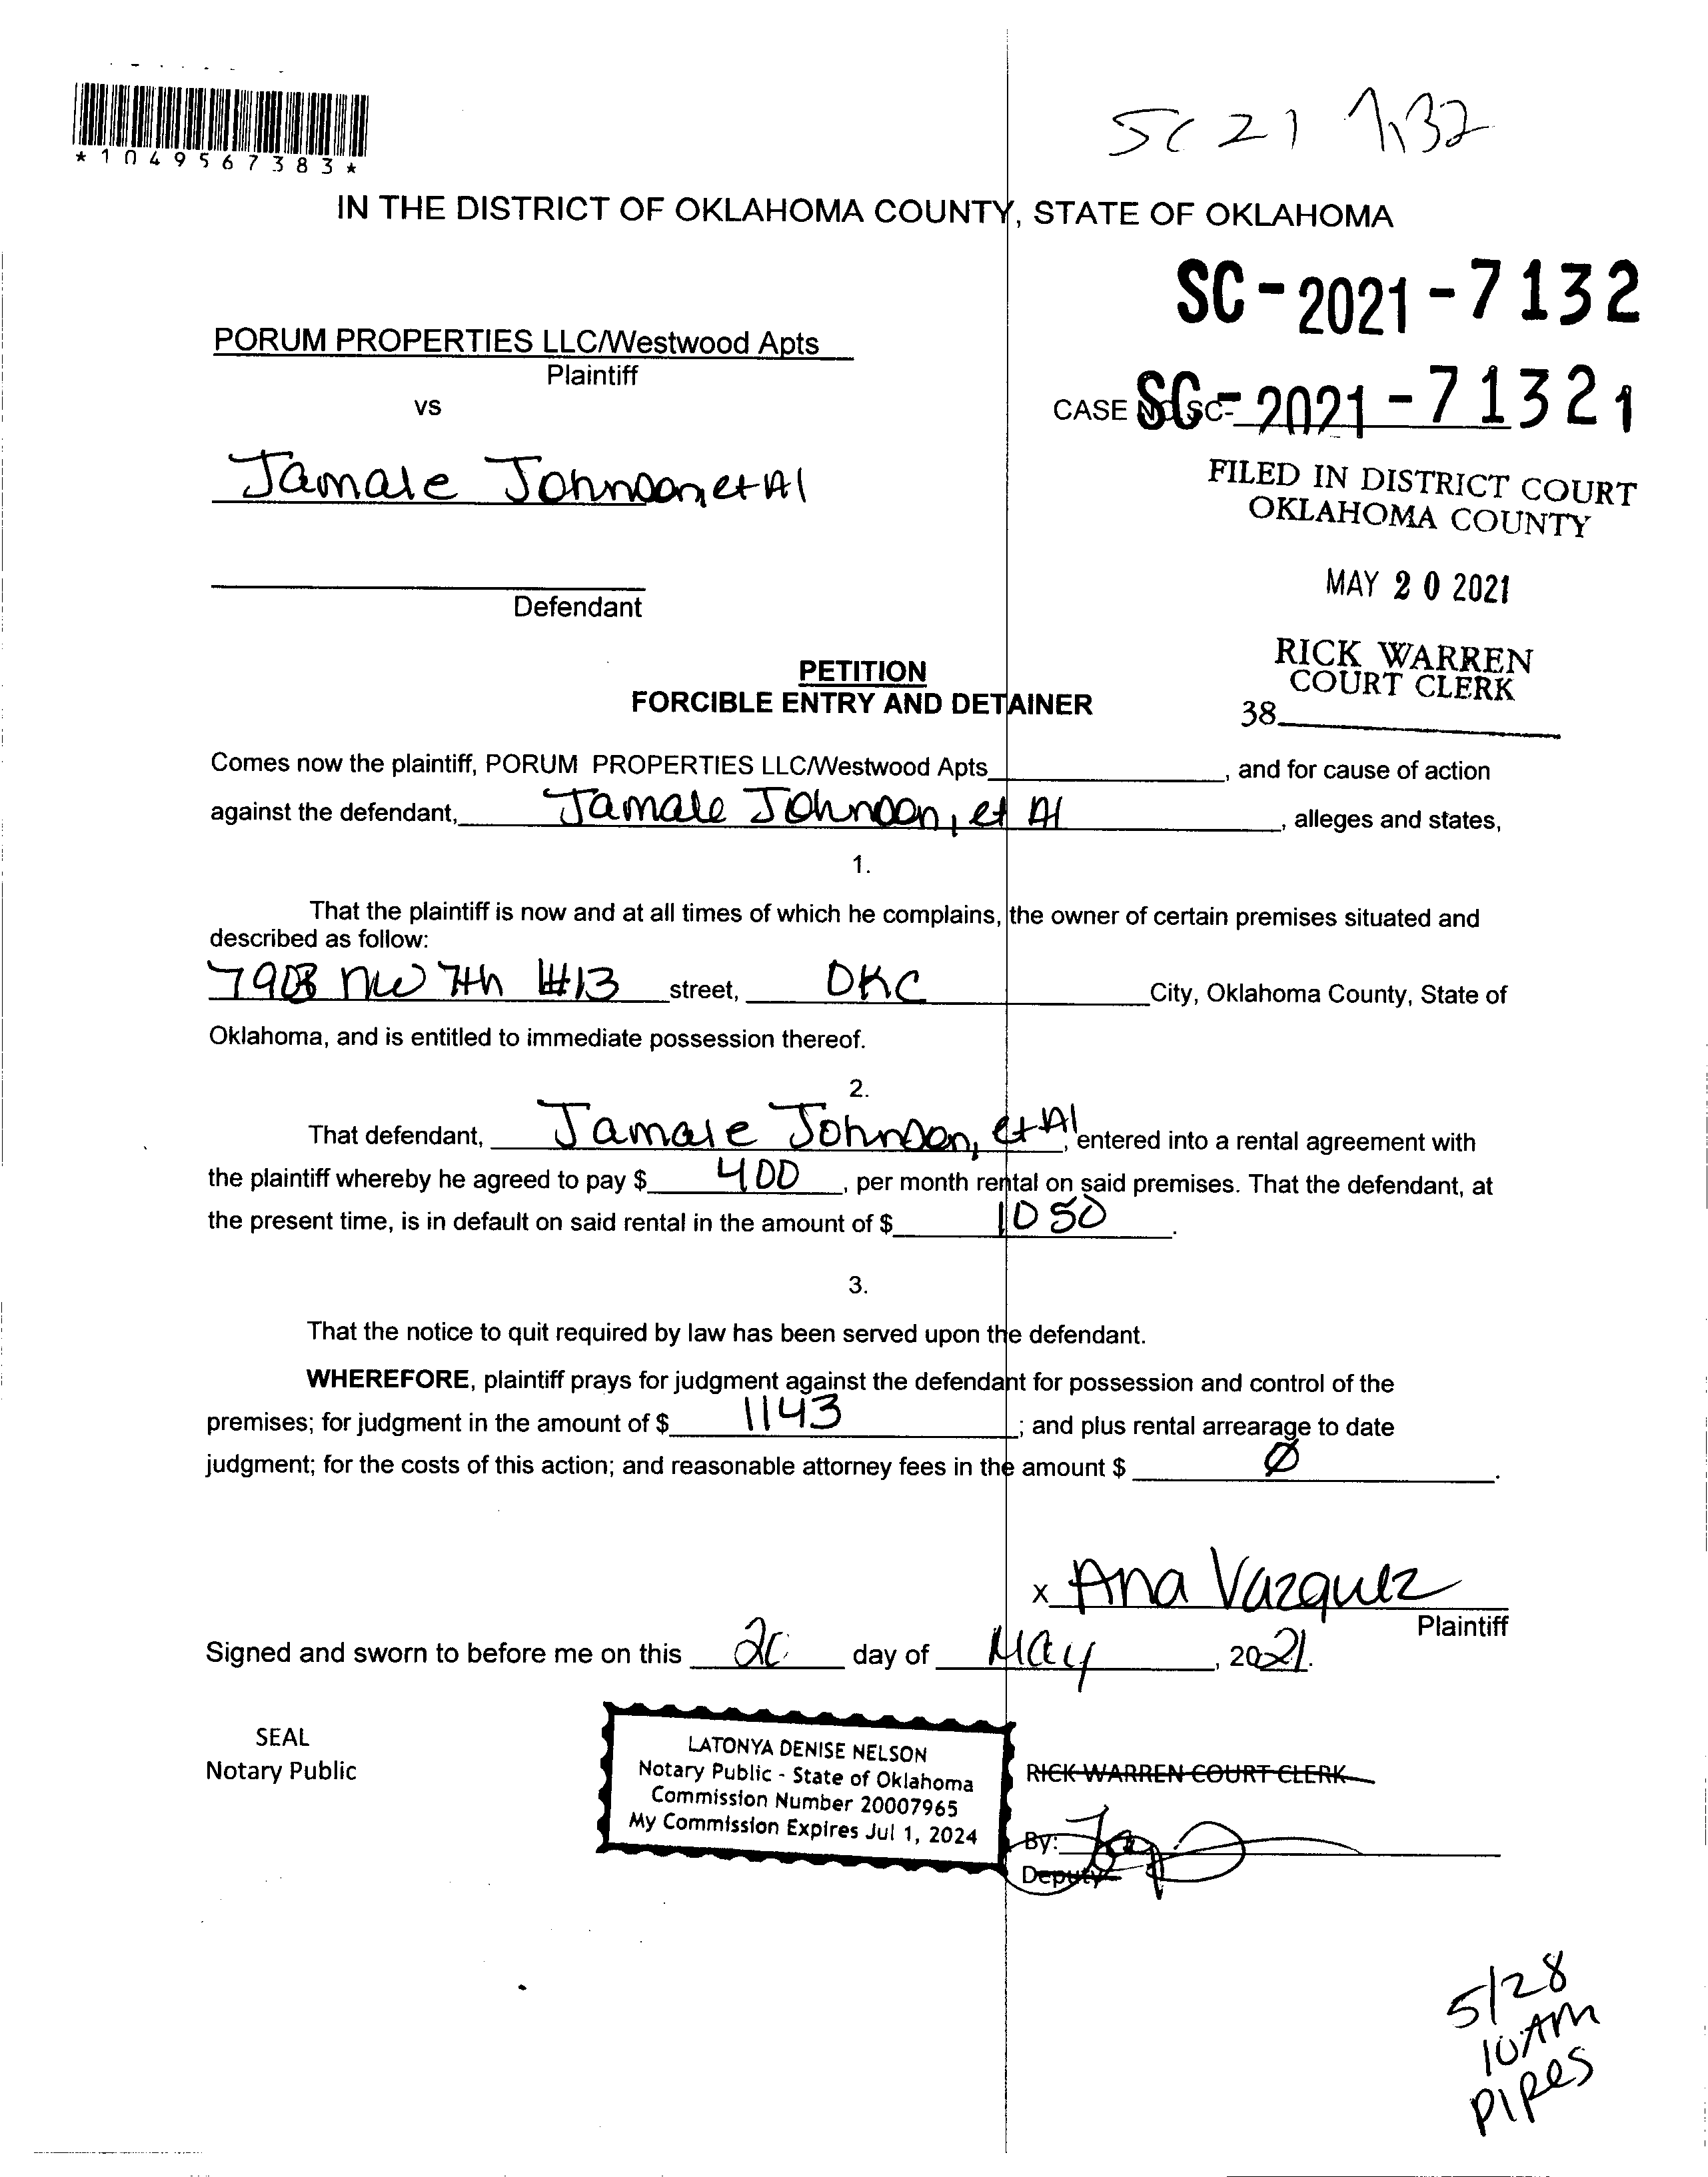 *1049567383*
SC 21 7132
IN THE DISTRICT OF OKLAHOMA COUNTY, STATE OF OKLAHOMA
SC-2021-7132
PORUM PROPERTIES LLC/Westwood Apts
Plaintiff
vs
CASE NO. SC- SC-2021-71321
Jamale Johnson, et Al
FILED IN DISTRICT COURT
OKLAHOMA COUNTY
MAY 20 2021
Defendant
RICK WARREN
COURT CLERK
38
PETITION
FORCIBLE ENTRY AND DETAINER
Comes now the plaintiff, PORUM PROPERTIES LLC/Westwood Apts , and for cause of action
against the defendant, Jamale Johnson, et Al , alleges and states,
1.
That the plaintiff is now and at all times of which he complains, the owner of certain premises situated and
described as follow:
7908 NW 7th #13 street, OKC City, Oklahoma County, State of
Oklahoma, and is entitled to immediate possession thereof.
2.
That defendant, Jamale Johnson, et Al , entered into a rental agreement with
the plaintiff whereby he agreed to pay $ 400 , per month rental on said premises. That the defendant, at
the present time, is in default on said rental in the amount of $ 1050 .
3.
That the notice to quit required by law has been served upon the defendant.
WHEREFORE, plaintiff prays for judgment against the defendant for possession and control of the
premises; for judgment in the amount of $ 1143 ; and plus rental arrearage to date
judgment; for the costs of this action; and reasonable attorney fees in the amount $ Ø .
x Ana Vazquez
Plaintiff
Signed and sworn to before me on this 20 day of May , 2021.
SEAL
Notary Public
LATONYA DENISE NELSON
Notary Public - State of Oklahoma
Commission Number 20007965
My Commission Expires Jul 1, 2024
RICK WARREN COURT CLERK
By:
Deputy
5/28
10AM
Pipes